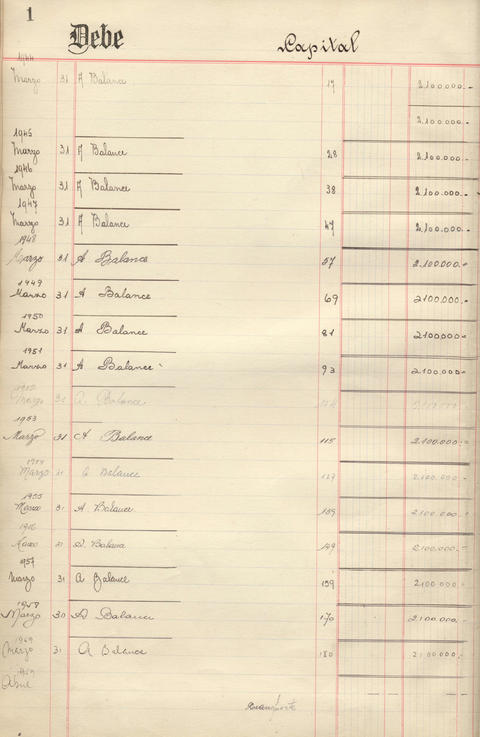 1
Debe Capital
1944
Marzo 31 A Balance 17 2.100.000.-
2.100.000.-
1945
Marzo 31 A Balance 28 2.100.000.-
1946
Marzo 31 A Balance 38 2.100.000.-
1947
Marzo 31 A Balance 47 2.100.000.-
1948
Marzo 31 A Balance 57 2.100.000.-
1949
Marzo 31 A Balance 69 2.100.000.-
1950
Marzo 31 A Balance 81 2.100.000.-
1951
Marzo 31 A Balance 93 2.100.000.-
1952
Marzo 31 A Balance
1953
Marzo 31 A Balance 115 2.100.000.-
1954
Marzo 31 A Balance 127 2.100.000.-
1955
Marzo 31 A Balance 139 2.100.000.-
1956
Marzo 31 A Balance 149 2.100.000.-
1957
Marzo 31 A Balance 159 2.100.000.-
1958
Marzo 30 A Balance 170 2.100.000.-
1959
Marzo 31 A Balance 180 2.100.000.-
1959
Abril
Transporte